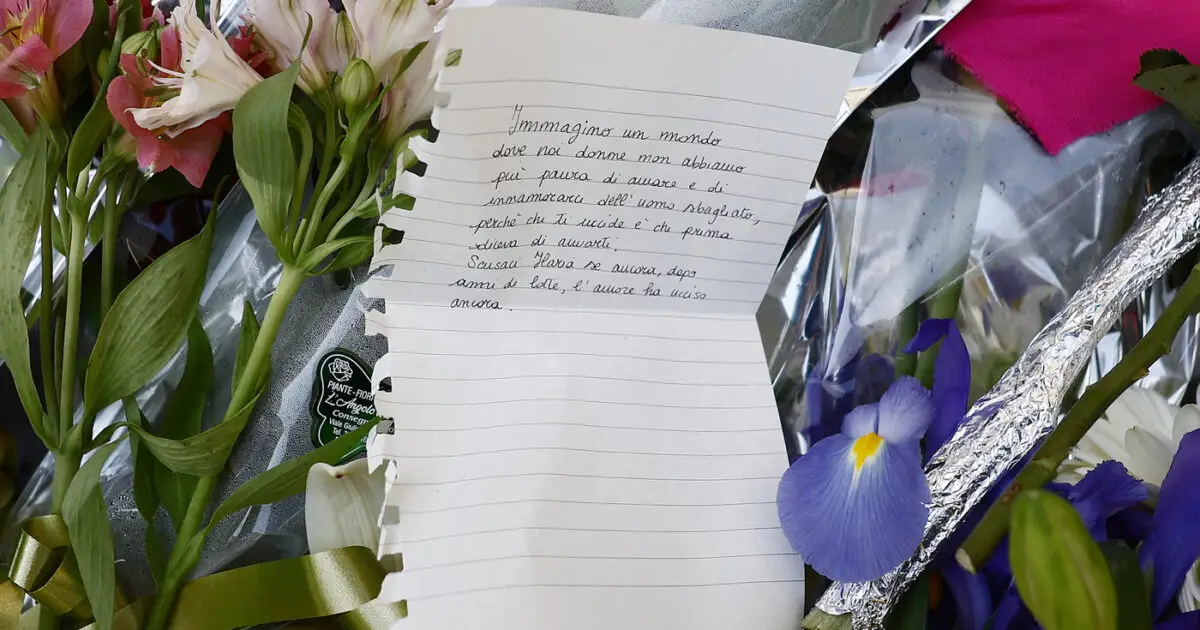 Immagino un mondo
dove noi donne non abbiamo
più paura di amare e di
innamorarci dell'uomo sbagliato,
perchè chi ti uccide è chi prima
diceva di amarti.
Scusaci Ilaria se ancora, dopo
anni di lotte, l'amore ha ucciso
ancora.
PIANTE-FIORI
L'Angolo
Consegn
Viale Giuli
Tel.